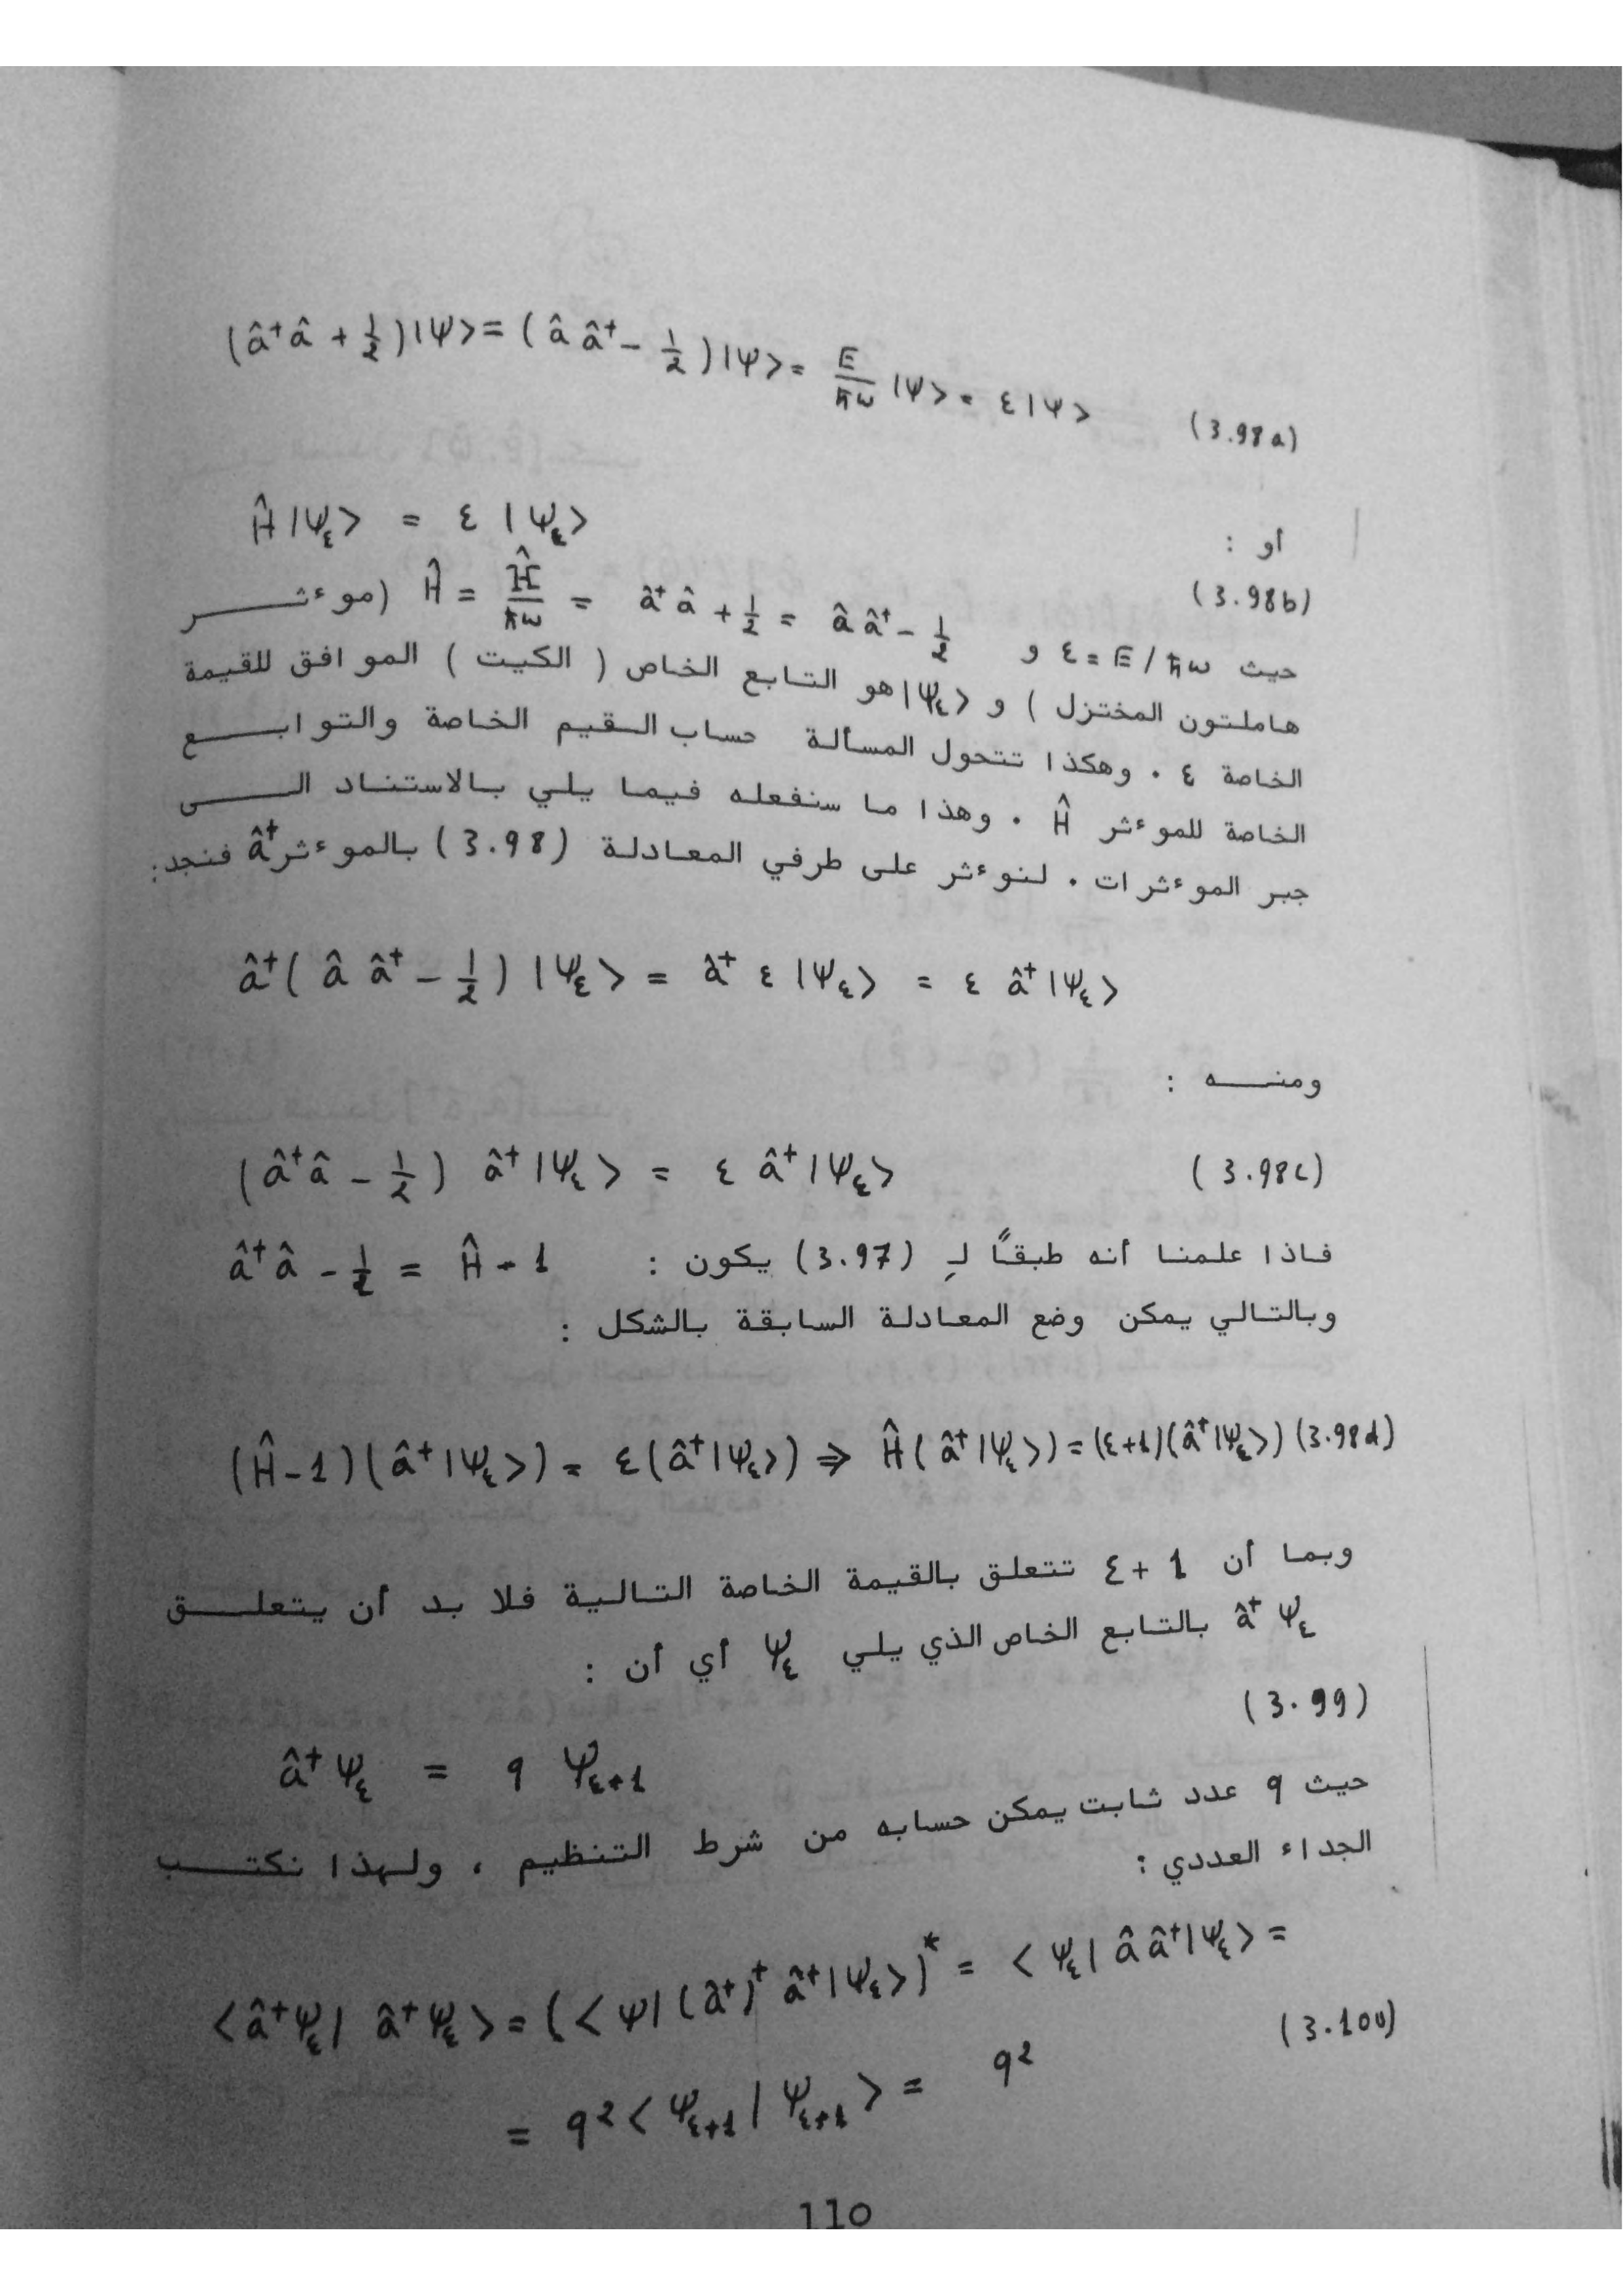 (â⁺â + ½)|Ψ> = (â â⁺ - ½)|Ψ> = E/ħω |Ψ> = ε|Ψ> (3.98a)
أو :
Ĥ|Ψ_ε> = ε |Ψ_ε> (3.98b)
حيث ε = E/ħω و Ĥ = Ĥ/ħω = â⁺â + ½ = â â⁺ - ½ (موءثر
هاملتون المختزل ) و |Ψ_ε> هو التابع الخاص ( الكيت ) الموافق للقيمة
الخاصة ε . وهكذا تتحول المسألة حساب القيم الخاصة والتوابع
الخاصة للموءثر Ĥ . وهذا ما سنفعله فيما يلي بالاستناد الى
جبر الموءثرات . لنوءثر على طرفي المعادلة (3.98) بالموءثر â⁺ فنجد:
â⁺( â â⁺ - ½ ) |Ψ_ε> = â⁺ ε |Ψ_ε> = ε â⁺|Ψ_ε>
ومنه :
(â⁺â - ½) â⁺|Ψ_ε> = ε â⁺|Ψ_ε> (3.98c)
فاذا علمنا أنه طبقاً لـِ (3.97) يكون : â⁺â - ½ = Ĥ - 1
وبالتالي يمكن وضع المعادلة السابقة بالشكل :
(Ĥ-1)(â⁺|Ψ_ε>) = ε(â⁺|Ψ_ε>) ⇒ Ĥ(â⁺|Ψ_ε>) = (ε+1)(â⁺|Ψ_ε>) (3.98d)
وبما أن ε+1 تتعلق بالقيمة الخاصة التالية فلا بد أن يتعلق
â⁺Ψ_ε بالتابع الخاص الذي يلي Ψ_ε أي أن :
(3.99)
â⁺Ψ_ε = q Ψ_ε+1
حيث q عدد ثابت يمكن حسابه من شرط التنظيم ، ولهذا نكتب
الجداء العددي :
<â⁺Ψ_ε| â⁺Ψ_ε> = (<Ψ|(â⁺)⁺ â⁺|Ψ_ε>)* = <Ψ_ε| â â⁺|Ψ_ε> =
(3.100)
= q²<Ψ_ε+1|Ψ_ε+1> = q²
110